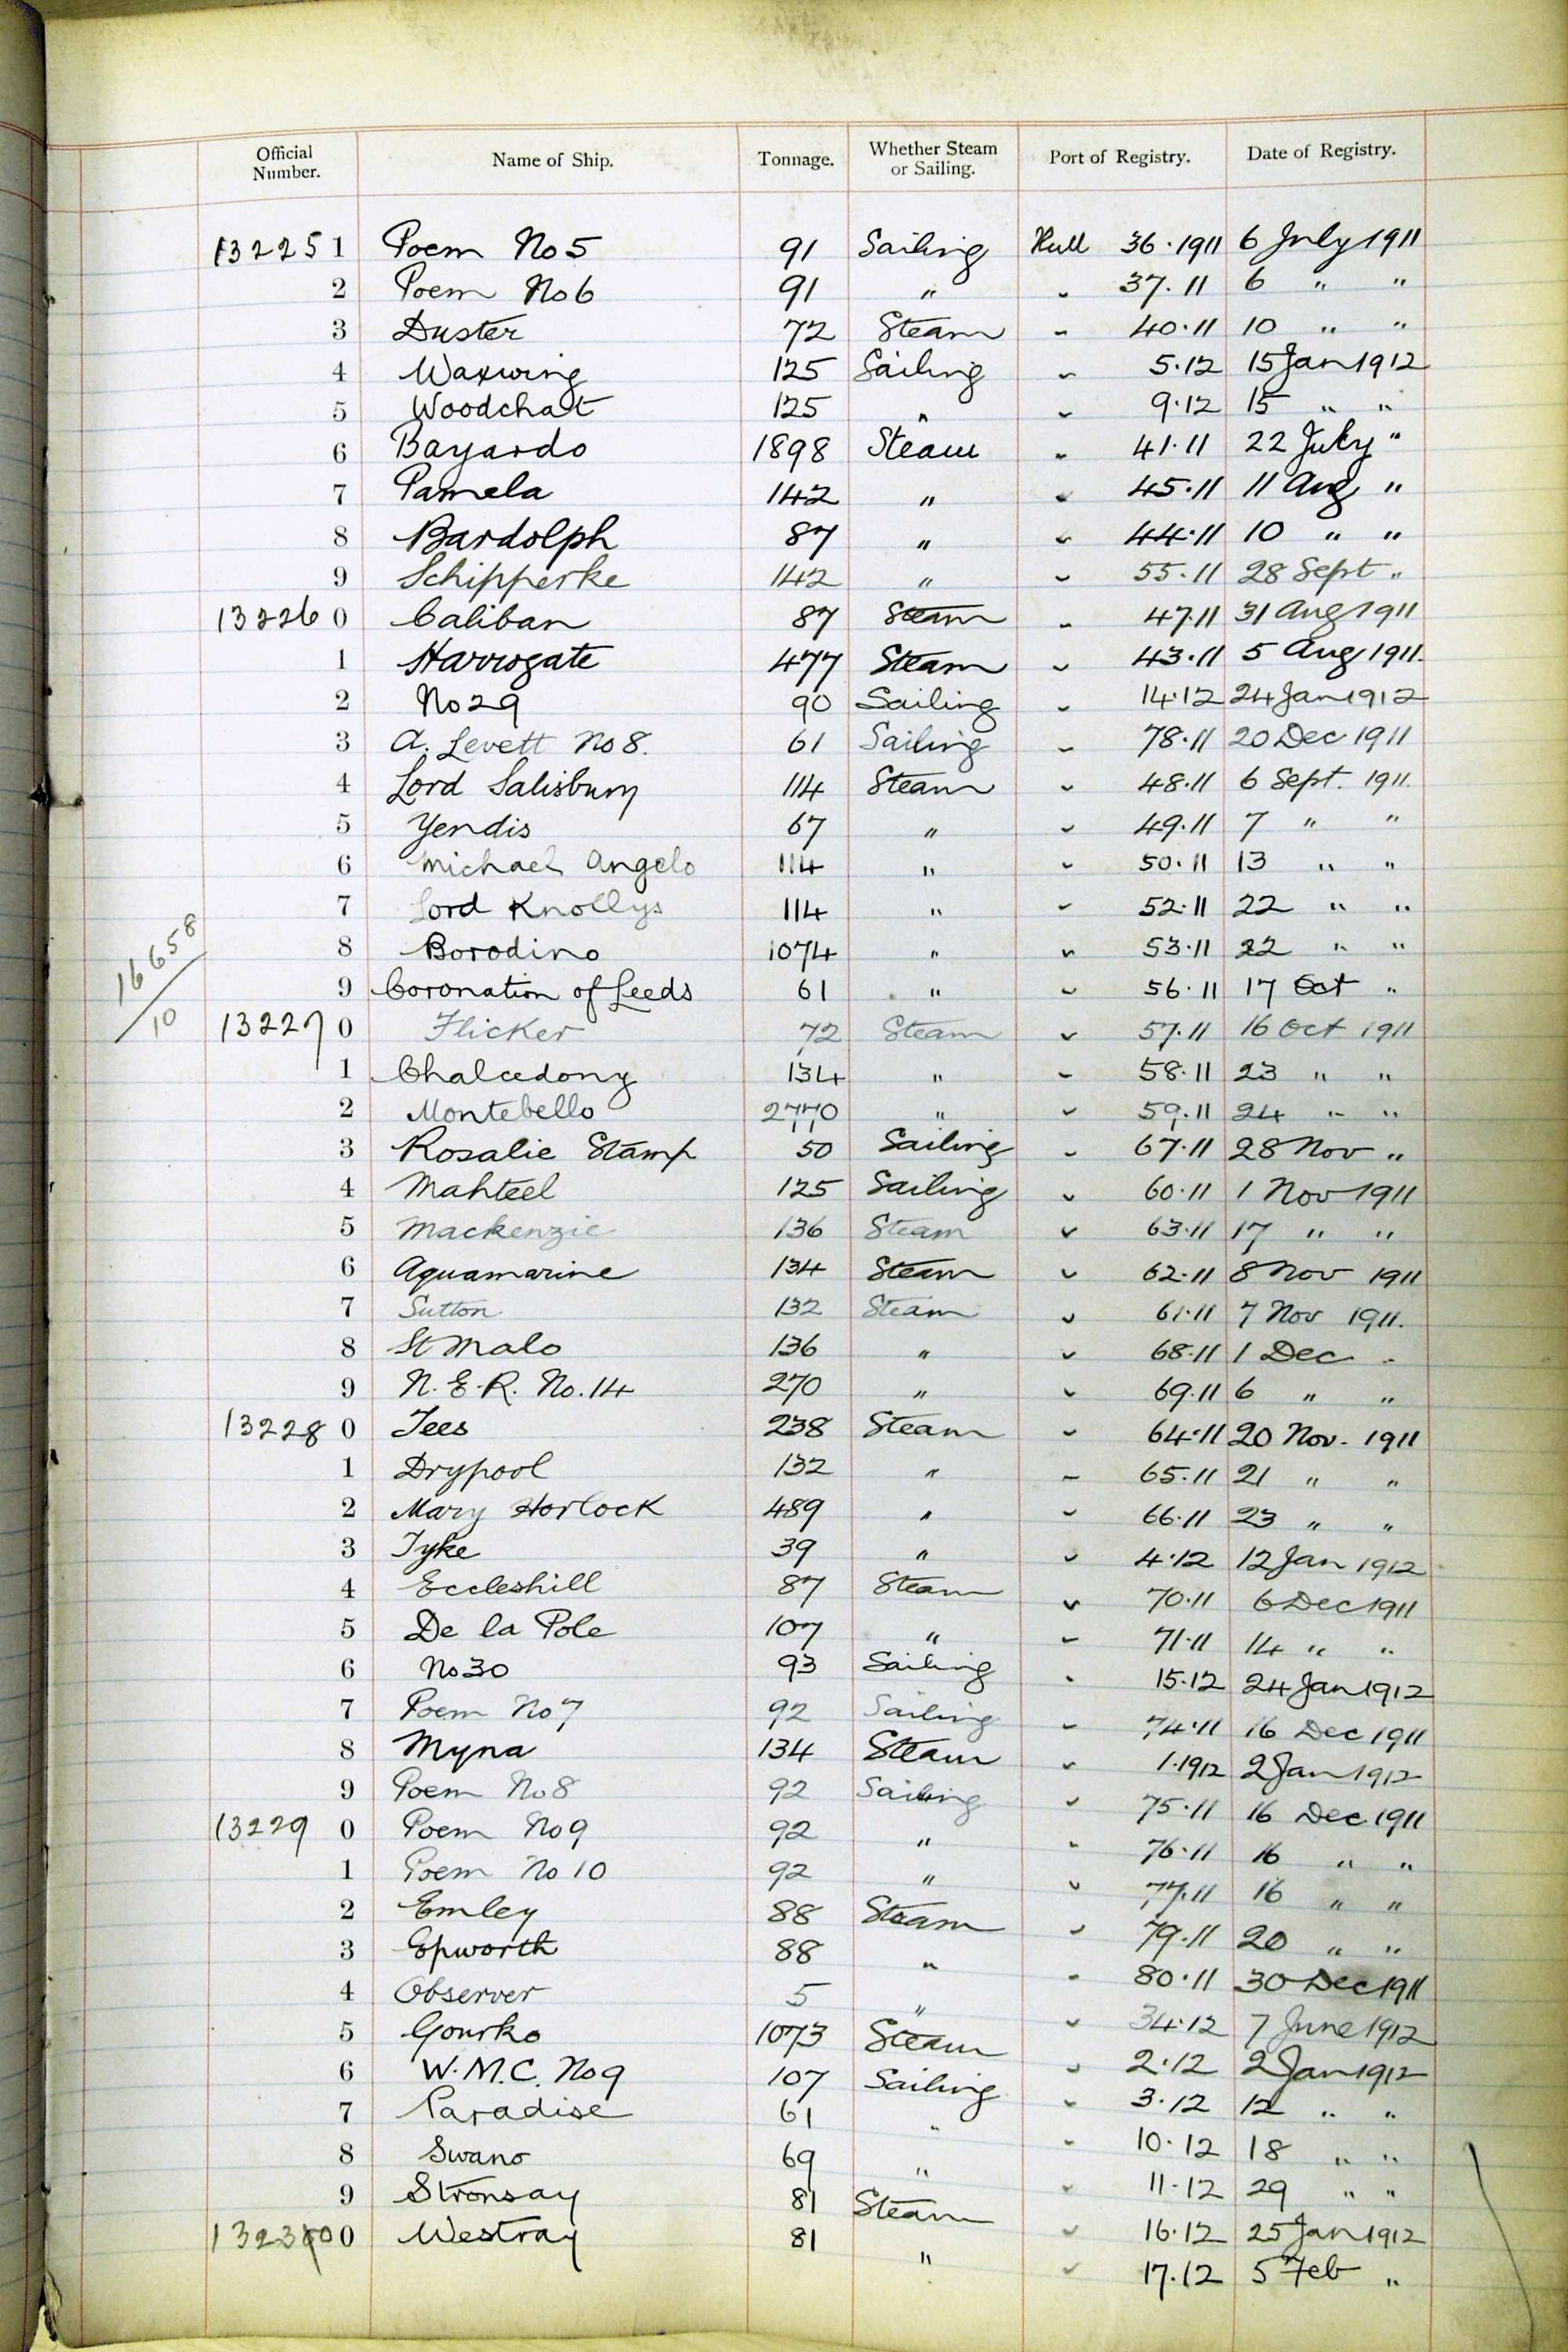 Official Number. Name of Ship. Tonnage. Whether Steam or Sailing. Port of Registry. Date of Registry.
132251 Poem No 5 91 Sailing Hull 36.1911 6 July 1911
2 Poem No 6 91 " " 37.11 6 " "
3 Duster 72 Steam " 40.11 10 " "
4 Waxwing 125 Sailing " 5.12 15 Jan 1912
5 Woodchat 125 " " 9.12 15 " "
6 Bayardo 1898 Steam " 41.11 22 July "
7 Pamela 142 " " 45.11 11 Aug "
8 Bardolph 87 " " 44.11 10 " "
9 Schipperke 142 " " 55.11 28 Sept "
132260 Caliban 87 Steam " 47.11 31 Aug 1911
1 Harrogate 477 Steam " 43.11 5 Aug 1911.
2 No 29 90 Sailing " 14.12 24 Jan 1912
3 A. Levett No 8. 61 Sailing " 78.11 20 Dec 1911
4 Lord Salisbury 114 Steam " 48.11 6 Sept. 1911.
5 Yendis 67 " " 49.11 7 " "
6 Michael Angelo 114 " " 50.11 13 " "
7 Lord Knollys 114 " " 52.11 22 " "
16658/10
8 Borodino 1074 " " 53.11 22 " "
9 Coronation of Leeds 61 " " 56.11 17 Oct "
132270 Flicker 72 Steam " 57.11 16 Oct 1911
1 Chalcedony 134 " " 58.11 23 " "
2 Montebello 2770 " " 59.11 24 " "
3 Rosalie Stamp 50 Sailing " 67.11 28 Nov "
4 Mahteel 125 Sailing " 60.11 1 Nov 1911
5 Mackenzie 136 Steam " 63.11 17 " "
6 Aquamarine 134 Steam " 62.11 8 Nov 1911
7 Sutton 132 Steam " 61.11 7 Nov 1911.
8 St Malo 136 " " 68.11 1 Dec "
9 N.E.R. No. 14 270 " " 69.11 6 " "
132280 Tees 238 Steam " 64.11 20 Nov. 1911
1 Drypool 132 " " 65.11 21 " "
2 Mary Horlock 489 " " 66.11 23 " "
3 Tyke 39 " " 4.12 12 Jan 1912
4 Eccleshill 87 Steam " 70.11 6 Dec 1911
5 De la Pole 107 " " 71.11 14 " "
6 No 30 93 Sailing " 15.12 24 Jan 1912
7 Poem No 7 92 Sailing " 74.11 16 Dec 1911
8 Myna 134 Steam " 1.1912 2 Jan 1912
9 Poem No 8 92 Sailing " 75.11 16 Dec 1911
132290 Poem No 9 92 " " 76.11 16 " "
1 Poem No 10 92 " " 77.11 16 " "
2 Emley 88 Steam " 79.11 20 " "
3 Epworth 88 " " 80.11 30 Dec 1911
4 Observer 5 " " 34.12 7 June 1912
5 Gourko 1073 Steam " 2.12 2 Jan 1912
6 W.M.C. No 9 107 Sailing " 3.12 12 " "
7 Paradise 61 " " 10.12 18 " "
8 Swano 69 " " 11.12 29 " "
9 Stronsay 81 Steam " 16.12 25 Jan 1912
132300 Westray 81 " " 17.12 5 Feb "